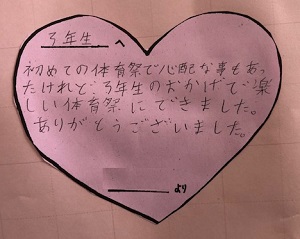 3年生 へ
初めての体育祭で心配な事もあっ
たけれど、3年生のおかげで楽
しい体育祭にできました。
ありがとうございました。
より